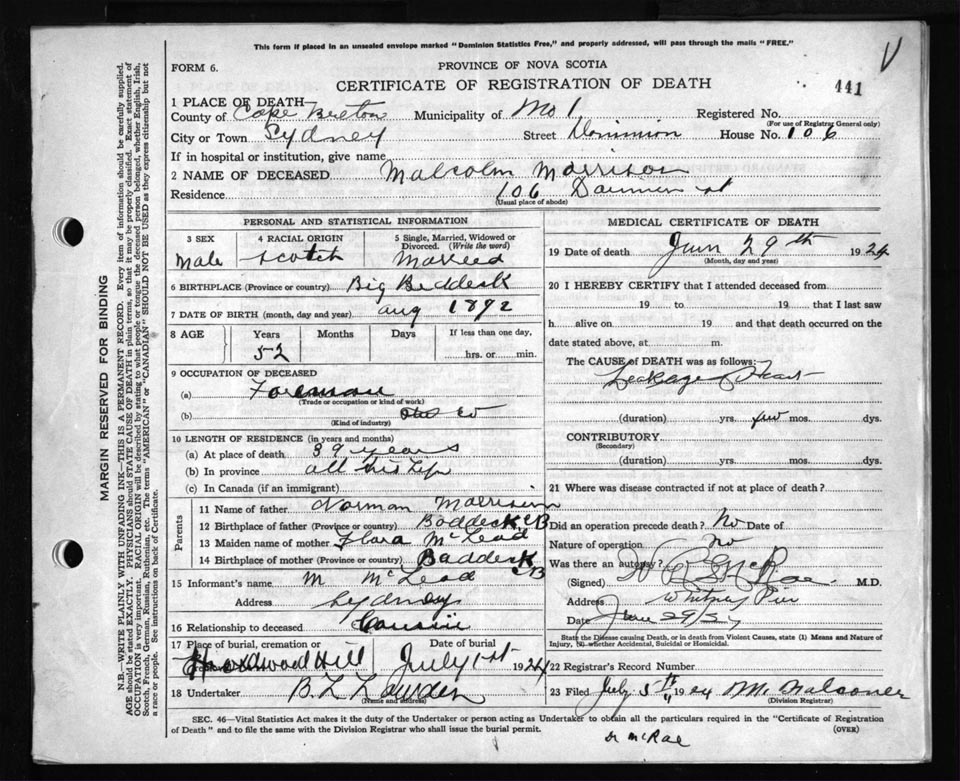 This form if placed in an unsealed envelope marked "Dominion Statistics Free," and properly addressed, will pass through the mails "FREE."
V
FORM 6.
PROVINCE OF NOVA SCOTIA
CERTIFICATE OF REGISTRATION OF DEATH
441
1 PLACE OF DEATH
County of Cape Breton Municipality of No 1 Registered No.
(For use of Registrar General only)
City or Town Sydney Street Dominion House No. 106
If in hospital or institution, give name
2 NAME OF DECEASED Malcolm Morrison
Residence 106 st
(Usual place of abode)
PERSONAL AND STATISTICAL INFORMATION
3 SEX 4 RACIAL ORIGIN 5 Single, Married, Widowed or Divorced. (Write the word)
Male Scotch Married
6 BIRTHPLACE (Province or country) Big Beddeck
7 DATE OF BIRTH (month, day and year) aug 1872
8 AGE Years Months Days If less than one day,
52 hrs. or min.
9 OCCUPATION OF DECEASED
(a) Foreman
(Trade or occupation or kind of work)
(b)
(Kind of industry)
10 LENGTH OF RESIDENCE (in years and months)
(a) At place of death 39 years
(b) In province all his life
(c) In Canada (if an immigrant)
Parents
11 Name of father Norman Morrison
12 Birthplace of father (Province or country) Baddeck CB
13 Maiden name of mother Flora McLeod
14 Birthplace of mother (Province or country) Baddeck CB
15 Informant's name M McLeod
Address Sydney
16 Relationship to deceased Cousin
17 Place of burial, cremation or Date of burial
Hardwood Hill July 1st 1924
18 Undertaker B L
(Name and address)
MEDICAL CERTIFICATE OF DEATH
19 Date of death June 29th 1924
(Month, day and year)
20 I HEREBY CERTIFY that I attended deceased from
19 to 19 that I last saw
h alive on 19 and that death occurred on the
date stated above, at m.
The CAUSE of DEATH was as follows:
Leakage Heart
(duration) yrs. few mos. dys.
CONTRIBUTORY
(Secondary)
(duration) yrs. mos. dys.
21 Where was disease contracted if not at place of death?
Did an operation precede death? No Date of
Nature of operation
Was there an autopsy? no
(Signed) McRae M.D.
Address Whitney Pier
Date June 29
State the Disease causing Death, or in death from Violent Causes, state (1) Means and Nature of Injury, (2) whether Accidental, Suicidal or Homicidal.
22 Registrar's Record Number
23 Filed July 5th 1924
(Division Registrar)
SEC. 46—Vital Statistics Act makes it the duty of the Undertaker or person acting as Undertaker to obtain all the particulars required in the "Certificate of Registration
of Death" and to file the same with the Division Registrar who shall issue the burial permit.
(OVER)
Dr McRae
MARGIN RESERVED FOR BINDING
N.B.—WRITE PLAINLY WITH UNFADING INK—THIS IS A PERMANENT RECORD. Every item of information should be carefully supplied.
AGE should be stated EXACTLY. PHYSICIANS should STATE CAUSE OF DEATH in plain terms, so that it may be properly classified. Exact statement of
OCCUPATION is very important. RACIAL ORIGIN will be described by stating to what people or tongue the deceased person belonged, whether English, Irish,
Scotch, French, German, Russian, Ruthenian, etc. The terms "AMERICAN" or "CANADIAN" SHOULD NOT BE USED as they express citizenship but not
a race or people. See instructions on back of Certificate.